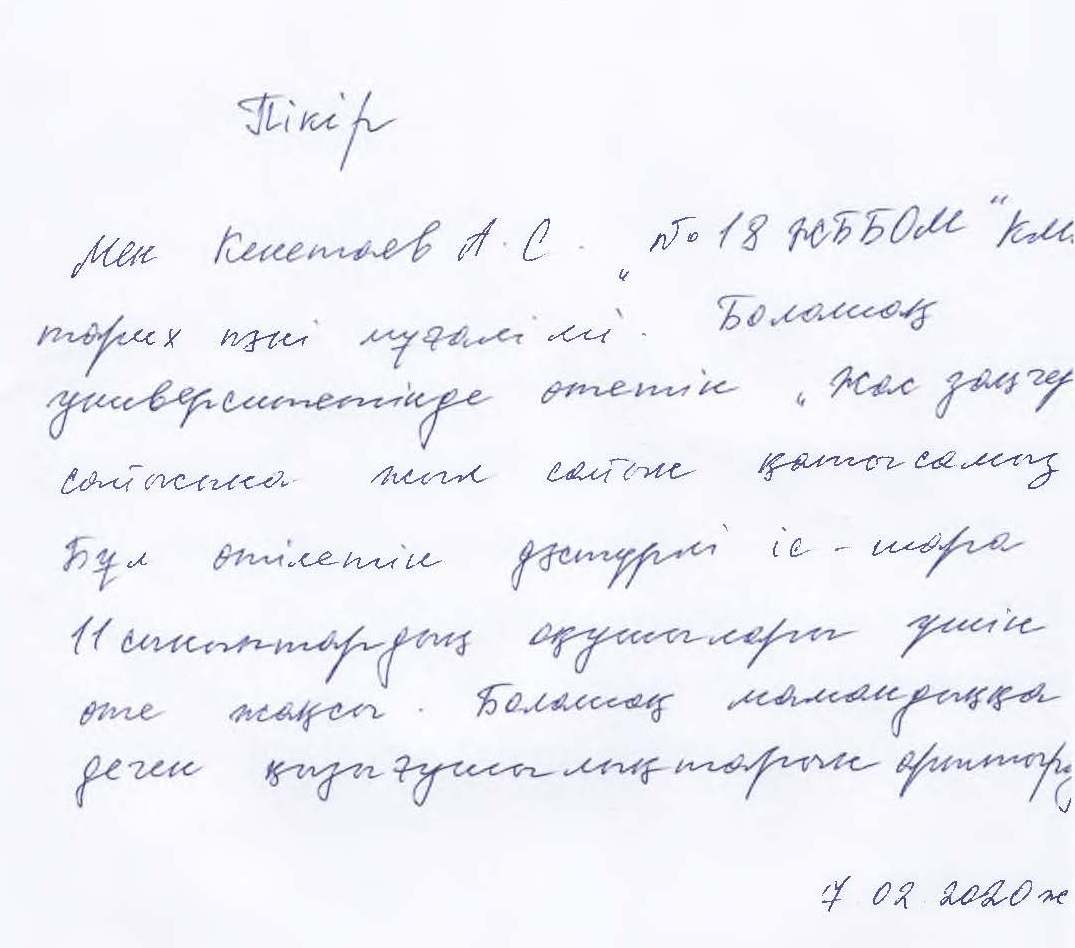 Пікір
Мен Кенетаев А. С. „№ 18 ЖББОМ“ КМ
тарих пәні мұғалімі. Болашақ
университетінде өтетін „Жас заңгер
сайысына жыл сайын қатысамыз
Бұл өтілетін дәстүрлі іс-шара
11 сыныптардың оқушылары үшін
өте жақсы. Болашақ мамандыққа
деген қызығушылықтарын арттыр
17 02 2020ж